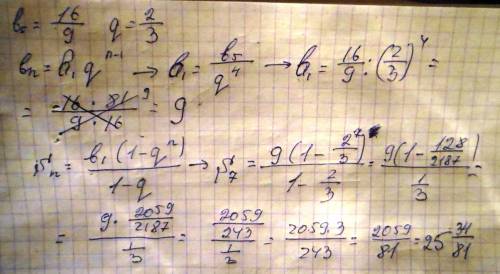 b₅ = 16/9 q = 2/3
bₙ = b₁ qⁿ⁻¹ → b₁ = b₅/q⁴ → b₁ = 16/9 : (2/3)⁴ =
= 16 · 81/9 · 16 ⁹ = 9
Sₙ = b₁ (1-qⁿ)/1-q → S₇ = 9(1 - 2/3⁷)/1 - 2/3 = 9(1 - 128/2187)/1/3 =
= 9 · 2059/2187/1/3 = 2059/243/1/3 = 2059·3/243 = 2059/81 = 25 34/81